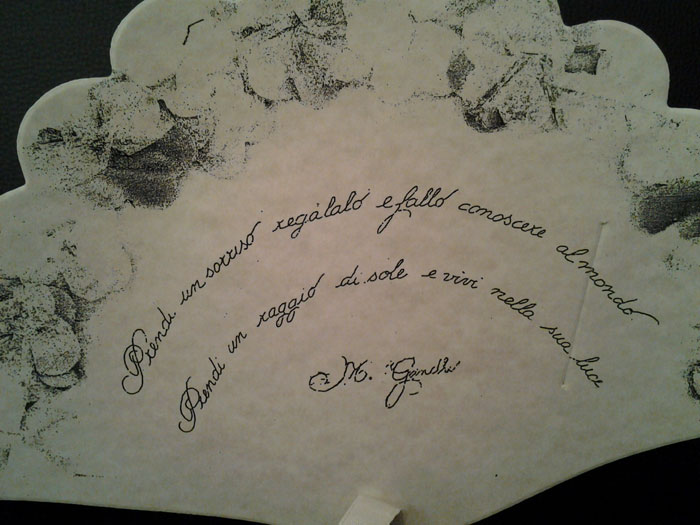 Prendi un sorriso regalalo e fallo conoscere al mondo
Prendi un raggio di sole e vivi nella sua luce
M. Gandhi